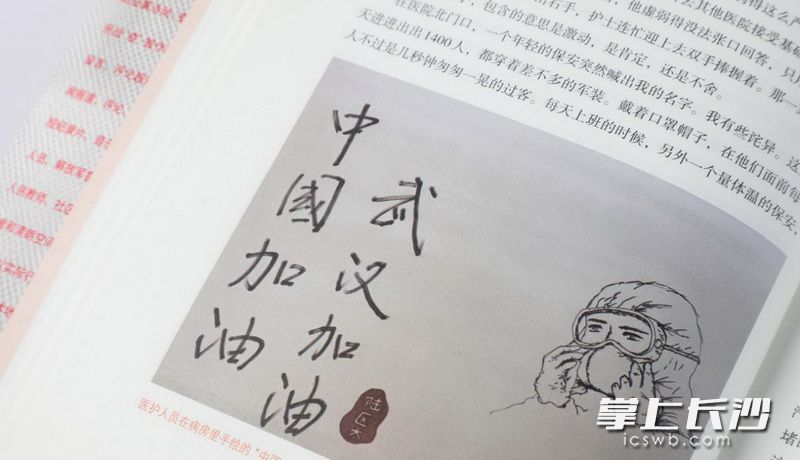 得这么严
其他医院接受基础
他虚弱得没法张口回答，只
出右手，护士连忙迎上去双手捧握着。那一
，包含的意思是激动，是肯定，还是不舍。
在医院北门口，一个年轻的保安突然喊出我的名字。我有些诧异。这
天进进出出1400人，都穿着差不多的军装。戴着口罩帽子，在他们面前每
人不过是几秒钟匆匆一晃的过客。每天上班的时候，另外一个量体温的保安，
中国加油
武汉加油
医护人员在病房里手绘的“中国
人民教师、社区
掌上长沙
icswb.com